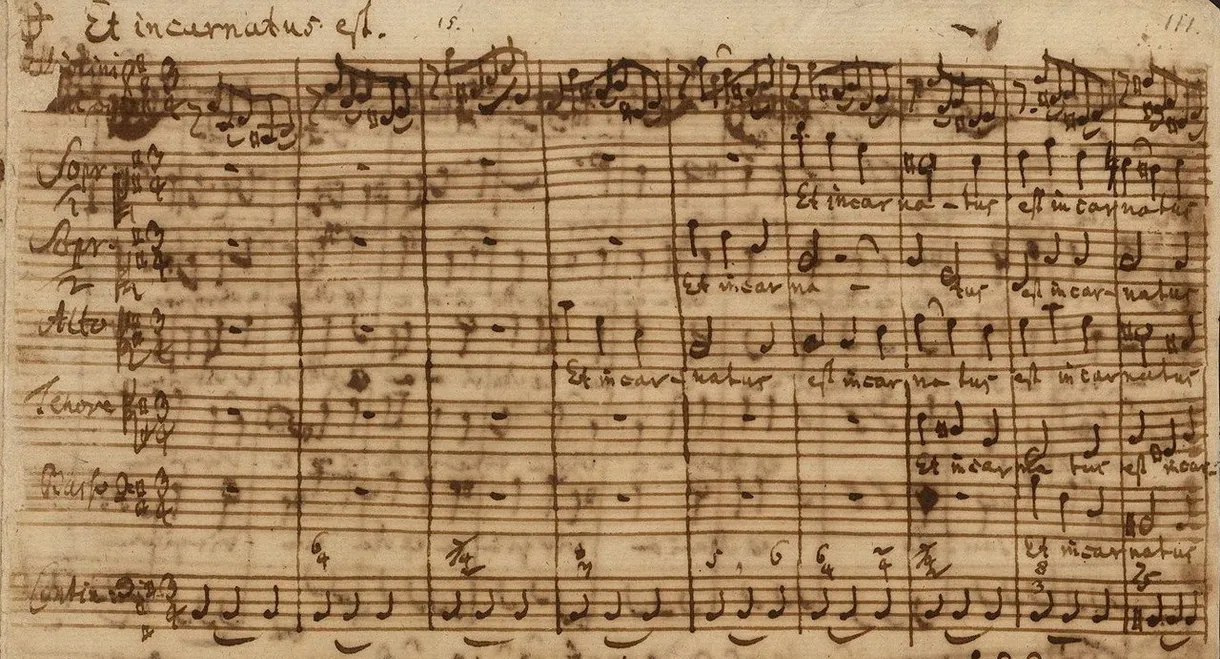 Et incarnatus est.
15.
111.
3 4
Sopr 1 3 4
Et incarna - tus est incarnatus
Sopr. 2 3 4
Et incarna - tus est incar- natus
Alto 3 4
Et incar- natus est incarna tus est incarnatus
Tenore 3 4
Et incarna tus est incar-
Basso 3 4
Et incarnatus
6 4
5 6 6 4
8 3
Contin 3 4